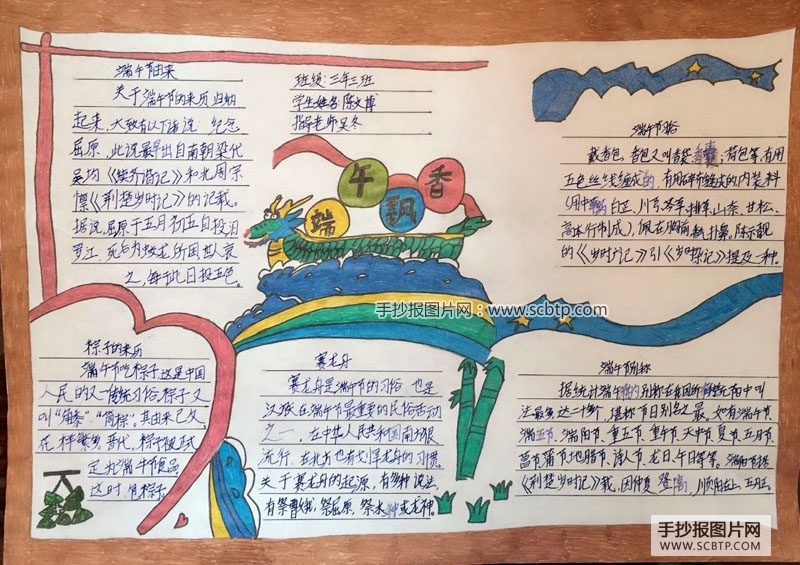 端午节由来
关于端午节的来历归纳
起来,大致有以下诸说 纪念
屈原,此说最早出自南朝梁代
吴均《续齐谐记》和北周宗
懔《荆楚岁时记》的记载。
据说,屈原于五月初五自投汨
罗江,死后为蛟龙所困世人哀
之,每于此日投五色
班级:三年三班
学生姓名
指导老师吴冬
端午飘香
端午节俗
戴香包,香包又叫香袋;荷包等,有用
五色丝线缠成的,有用碎布缝成的内装料
(用中 白芷、川芎、芩草、排草、山奈、甘松、
高本行制成),佩在胸前,香气扑鼻。陈示靓
的《岁时广记》引《岁时杂记》提及一种。
手抄报图片网:www.scbtp.com
粽子的来历
端午节吃粽子这是中国
人民的又一传统习俗粽子又
叫“角黍”“筒粽”。其由来已久,
花样繁多。晋代,粽子被
定为端午节食品
这时,包粽子
赛龙舟
赛龙舟是端午节的习俗 也是
汉族在端午节最重要的民俗活动
之一,在中华人民共和国南方很
流行,在北方也有划旱龙舟的习惯
关于赛龙舟的起源,有多种说法,
有祭曹娥,祭屈原,祭水神或龙神。
端午节别称
据统计端午节的别称在我国所有传统节日中叫
法最多达二十多个,堪称节日别名之最,如有端午节,
端五节、端阳节、重五节、重午节、天中节、夏节、五月节、
菖节、蒲节、地腊节、诗人节、龙日、午日等等。端阳节据
《荆楚岁时记》载,因仲夏登高,顺阳在上,五月
手抄报图片网
WWW.SCBTP.COM